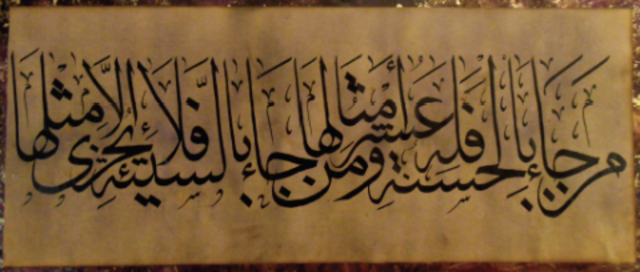 من جاء بالحسنة فله عشر أمثالها ومن جاء بالسيئة فلا يجزى إلا مثلها